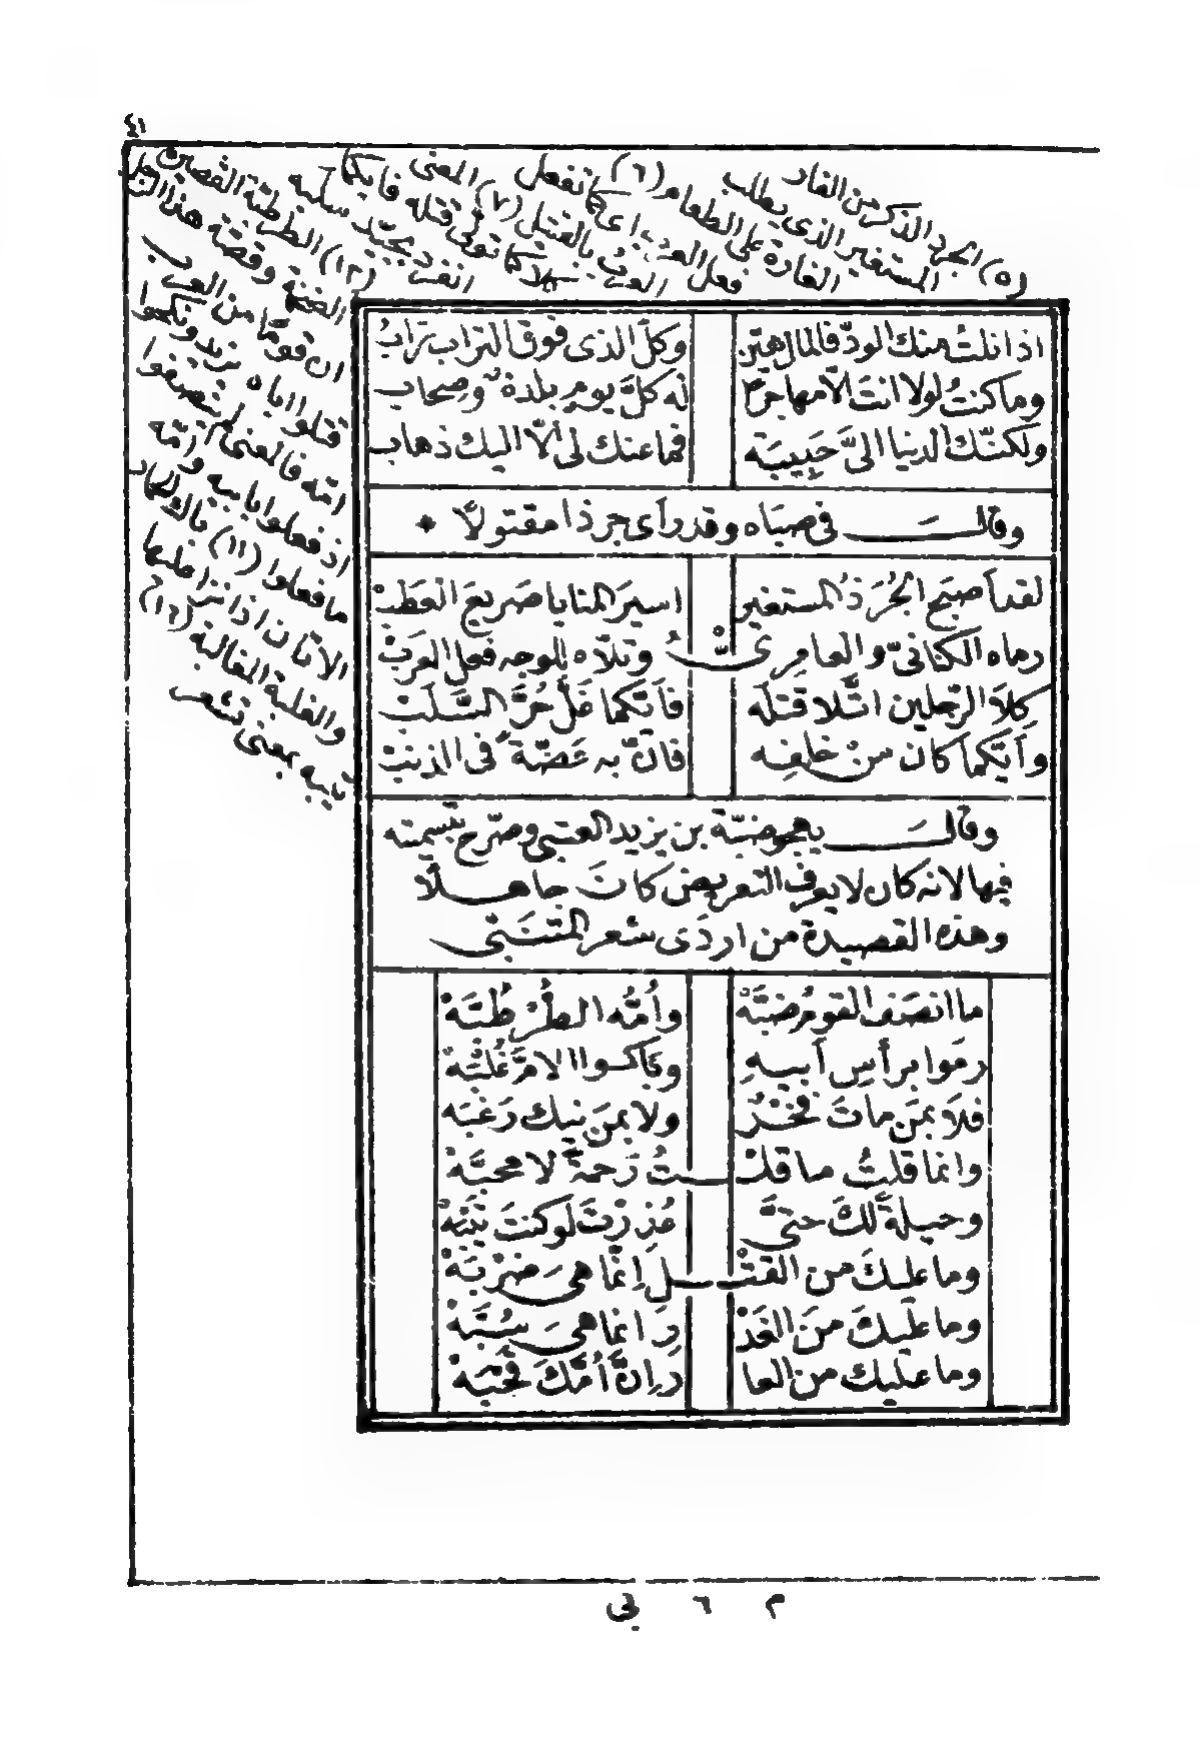 ٤١
(٥) الجرد الذكر من الفار
المستغير الذي يطلب
الغارة على الطعام (٦)
فعل العرب اى كما تفعل
العرب بالقتيل (٧) المعنى
تولى قتله فايكما
انفرد بجيّد سلبه
(١٢) الطرطبّة القصيرة
الضخمة وقصّة هذا الرجل
ان قومًا من العرب
قتلوا اباه يزيد ونكحوا
امّه فالمعنى لم ينصفوا
اذ فعلوا بابيه وامّه
ما فعلوا (١١)
الاتان اذا نزا عليها
والغلبة المغالبة (١٦)
تيبه بمعنى تشعر
اذا نلتُ منك الودّ فالمال هيّن وكلّ الذى فوق التراب ترابُ
وما كنتُ لولا انتَ الّا مهاجرًا له كلَّ يومٍ بلدة وصحاب
ولكنّك الدنيا الىَّ حَبِيبَة فما عنك لى الّا اليك ذهاب
وقالَ في صباه وقد رأى جرذا مقتولًا *
لقد اَصبَح الجُرَذُ المستغير اسيرَ المنايا صَريعَ العَطَبْ
رماه الكنانىّ والعامرىّ وتلّاه للوجه فعل العَرَبْ
كِلاَ الرّجلين اتّلا قَتلَه فاَيّكما غَلَّ حُرَّ السَّلَبْ
وأيّكما كان من خلفِه فانّ به عَضّةً فى الذنبْ
وقالَ يهجو ضبّة بن يزيد العتبى وصرّح بتسميته
فيها لانه كان لا يعرف التعريض كانَ جاهلًا
وهذه القصيدة من اردَى شعر المتنبّى
ما انصَف القومُ ضبَّهْ وأُمَّه الطُرْطُبَّهْ
رمَوا برأسِ أَبيهِ وباكوا الامّ غُلُبَّهْ
فلَا بمَن ماتَ فخْرٌ ولا بمَن نيك رَغبَه
وانما قلتُ ما قلْتُ رَحمةً لا محبَّهْ
وحيلةً لكَ حتىَّ عُذِرْتَ لو كنتَ تِيبَهْ
وما عليكَ من القَتْلِ اِنَّما هىَ ضرْبَهْ
وما علَيكَ منَ الغَدْرِ انما هىَ سُبَّهْ
وما عليك من العارِ اِنَّ أُمَّكَ قَحْبَهْ
م ٦ فى